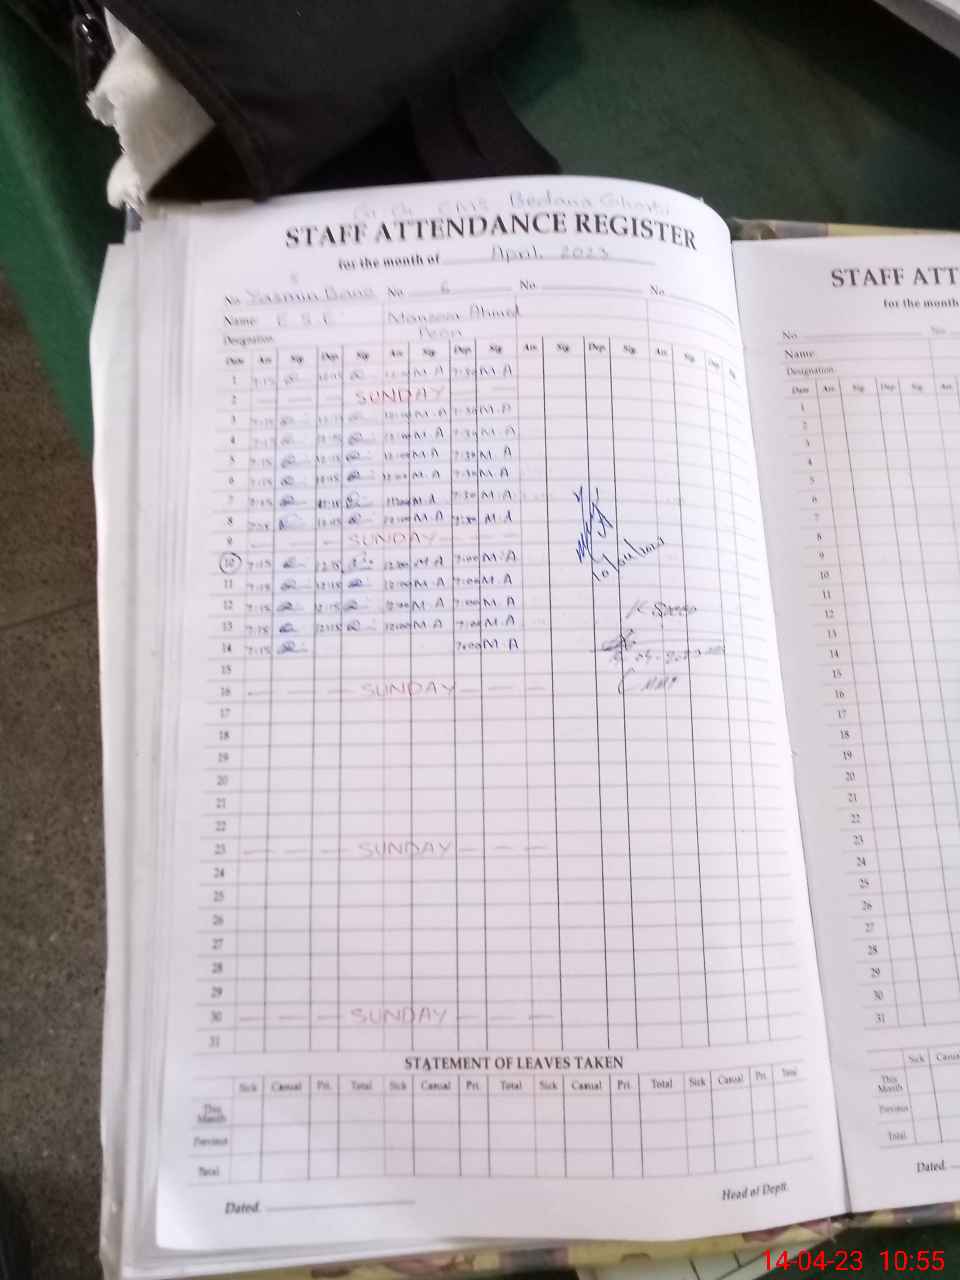 CMS Bedana Ghanbi
STAFF ATTENDANCE REGISTER
for the month of April, 2023
5
No Yasmin Bano No 6 No. No.
Name E S E Manzoor Ahmed
Designation Peon
Date Arr. Sig. Dep. Sig. Arr. Sig. Dep. Sig. Arr. Sig. Dep. Sig. Arr. Sig. Dep. Sig.
1 7:15 12:15 M.A 7:30 M.A
2 SUNDAY
3 7:15 12:15 12:00 M.A 7:30 M.A
4 7:15 12:15 12:00 M.A 7:30 M.A
5 7:15 12:15 12:00 M.A 7:30 M.A
6 7:15 12:15 12:00 M.A 7:30 M.A
7 7:15 12:00 M.A 7:30 M.A
8 12:15 12:00 M.A 7:30 M.A
9 SUNDAY
10 7:15 12:15 12:00 M.A 7:00 M.A
11 7:15 12:15 12:00 M.A 7:00 M.A
12 7:15 12:15 12:00 M.A 7:00 M.A
13 7:15 12:15 12:00 M.A 7:00 M.A
14 7:15 7:00 M.A
15
16 SUNDAY
17
18
19
20
21
22
23 SUNDAY
24
25
26
27
28
29
30 SUNDAY
31
STATEMENT OF LEAVES TAKEN
Sick Casual Pri. Total Sick Casual Pri. Total Sick Casual Pri. Total Sick Casual Pri. Total
This Month
Previous
Total
Dated.
Head of Deptt.
STAFF ATT
for the month
No
Name
Designation
Date Arr. Sig. Dep. Sig. Arr.
1
2
3
4
5
6
7
8
9
10
11
12
13
14
15
16
17
18
19
20
21
22
23
24
25
26
27
28
29
30
31
Sick
This Month
Previous
Total
Dated.
14-04-23 10:55